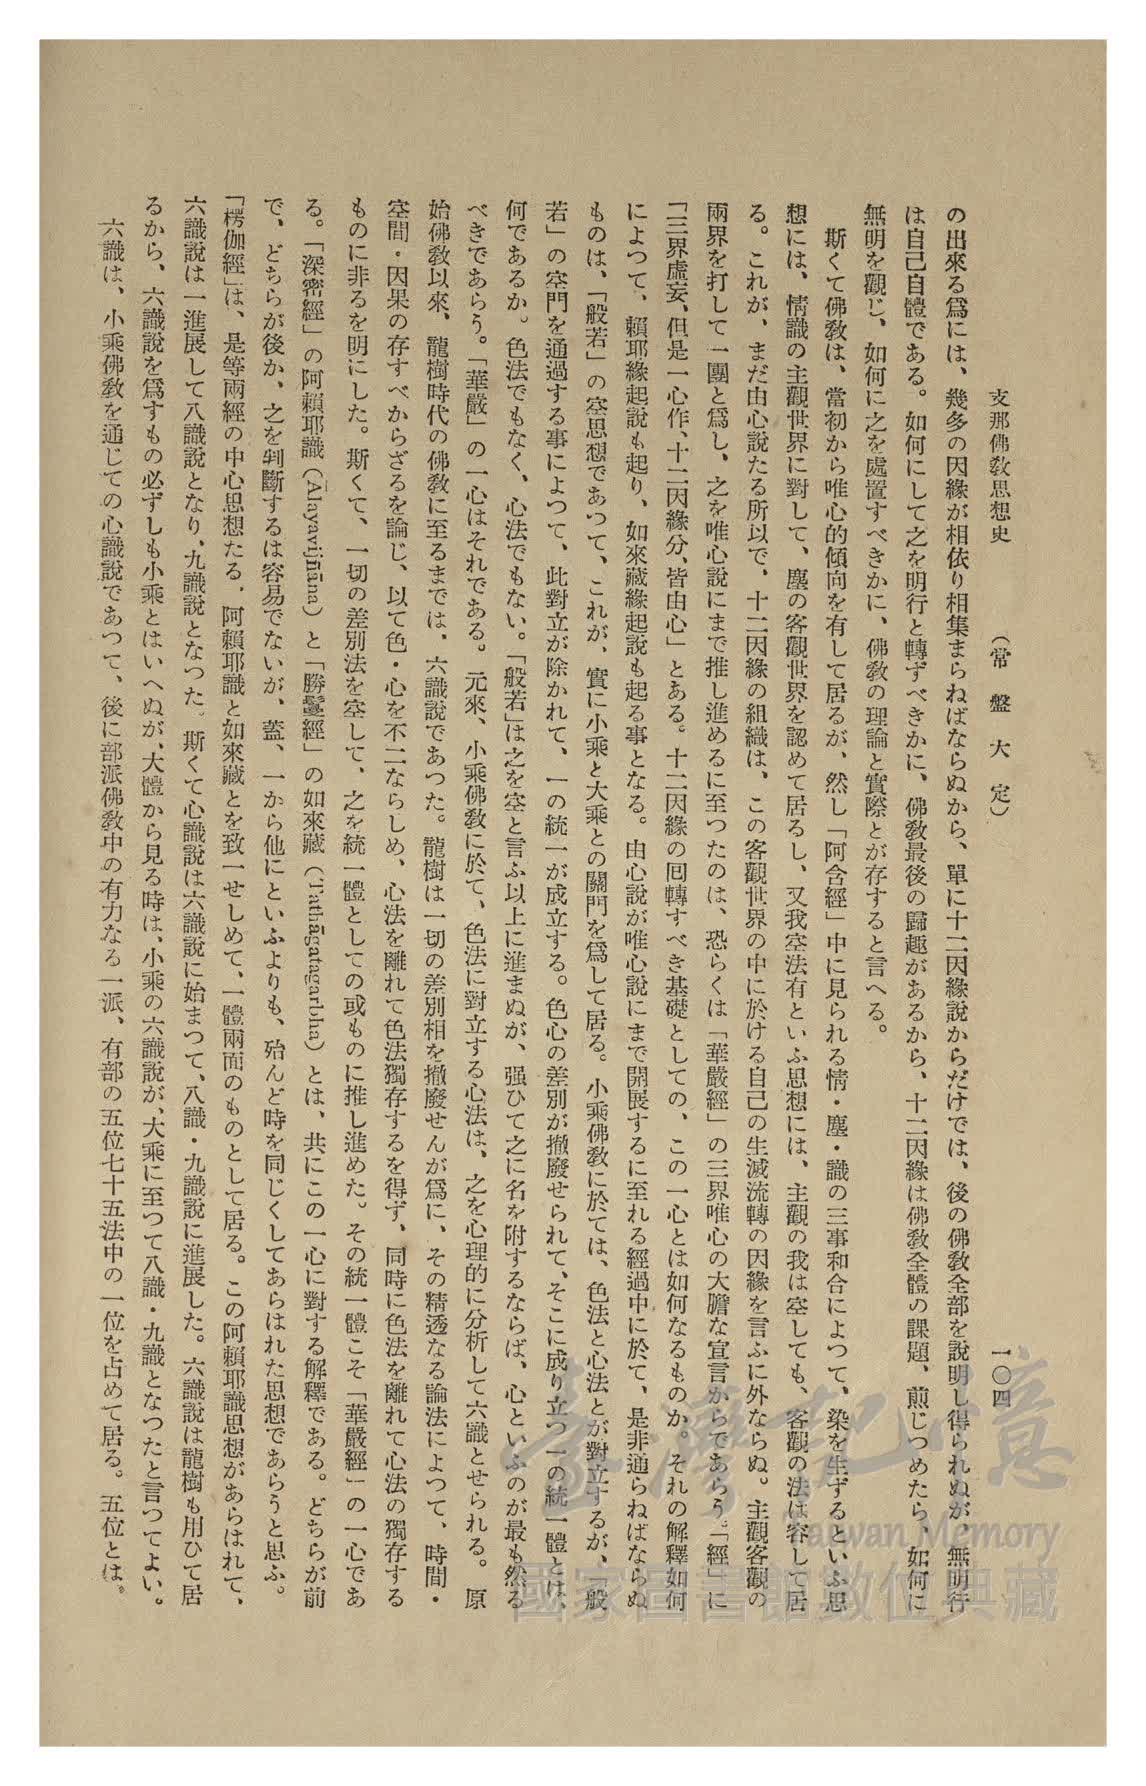 支那佛敎思想史　（常盤大定）　一〇四
の出來る爲には、幾多の因緣が相依り相集まらねばならぬから、單に十二因緣說からだけでは、後の佛敎全部を說明し得られぬが、無明行
は自己自體である。如何にして之を明行と轉ずべきかに、佛敎最後の歸趣があるから、十二因緣は佛敎全體の課題、煎じつめたら、如何に
無明を觀じ、如何に之を處置すべきかに、佛敎の理論と實際とが存すると言へる。
斯くて佛敎は、當初から唯心的傾向を有して居るが、然し「阿含經」中に見られる情・塵・識の三事和合によつて、染を生ずるといふ思
想には、情識の主觀世界に對して、塵の客觀世界を認めて居るし、又我空法有といふ思想には、主觀の我は空しても、客觀の法は容して居
る。これが、まだ由心說たる所以で、十二因緣の組織は、この客觀世界の中に於ける自己の生滅流轉の因緣を言ふに外ならぬ。主觀客觀の
兩界を打して一團と爲し、之を唯心說にまで推し進めるに至つたのは、恐らくは「華嚴經」の三界唯心の大膽な宣言からであらう。「經」に
「三界虛妄、但是一心作、十二因緣分、皆由心」とある。十二因緣の囘轉すべき基礎としての、この一心とは如何なるものか。それの解釋如何
によつて、賴耶緣起說も起り、如來藏緣起說も起る事となる。由心說が唯心說にまで開展するに至れる經過中に於て、是非通らねばならぬ
ものは、「般若」の空思想であつて、これが、實に小乘と大乘との關門を爲して居る。小乘佛敎に於ては、色法と心法とが對立するが、「般
若」の空門を通過する事によつて、此對立が除かれて、一の統一が成立する。色心の差別が撤廢せられて、そこに成り立つ一の統一體とは、
何であるか。色法でもなく、心法でもない。「般若」は之を空と言ふ以上に進まぬが、强ひて之に名を附するならば、心といふのが最も然る
べきであらう。「華嚴」の一心はそれである。元來、小乘佛敎に於て、色法に對立する心法は、之を心理的に分析して六識とせられる。原
始佛敎以來、龍樹時代の佛敎に至るまでは、六識說であつた。龍樹は一切の差別相を撤廢せんが爲に、その精透なる論法によつて、時間・
空間・因果の存すべからざるを論じ、以て色・心を不二ならしめ、心法を離れて色法獨存するを得ず、同時に色法を離れて心法の獨存する
ものに非るを明にした。斯くて、一切の差別法を空して、之を統一體としての或ものに推し進めた。その統一體こそ「華嚴經」の一心であ
る。「深密經」の阿賴耶識（Ālayavijñāna）と「勝鬘經」の如來藏（Tathāgatagarbha）とは、共にこの一心に對する解釋である。どちらが前
で、どちらが後か、之を判斷するは容易でないが、蓋、一から他にといふよりも、殆んど時を同じくしてあらはれた思想であらうと思ふ。
「楞伽經」は、是等兩經の中心思想たる、阿賴耶識と如來藏とを致一せしめて、一體兩面のものとして居る。この阿賴耶識思想があらはれて、
六識說は一進展して八識說となり、九識說となつた。斯くて心識說は六識說に始まつて、八識・九識說に進展した。六識說は龍樹も用ひて居
るから、六識說を爲すもの必ずしも小乘とはいへぬが、大體から見る時は、小乘の六識說が、大乘に至つて八識・九識となつたと言つてよい。
六識は、小乘佛敎を通じての心識說であつて、後に部派佛敎中の有力なる一派、有部の五位七十五法中の一位を占めて居る。五位とは。
臺灣記憶
Taiwan Memory
國家圖書館數位典藏